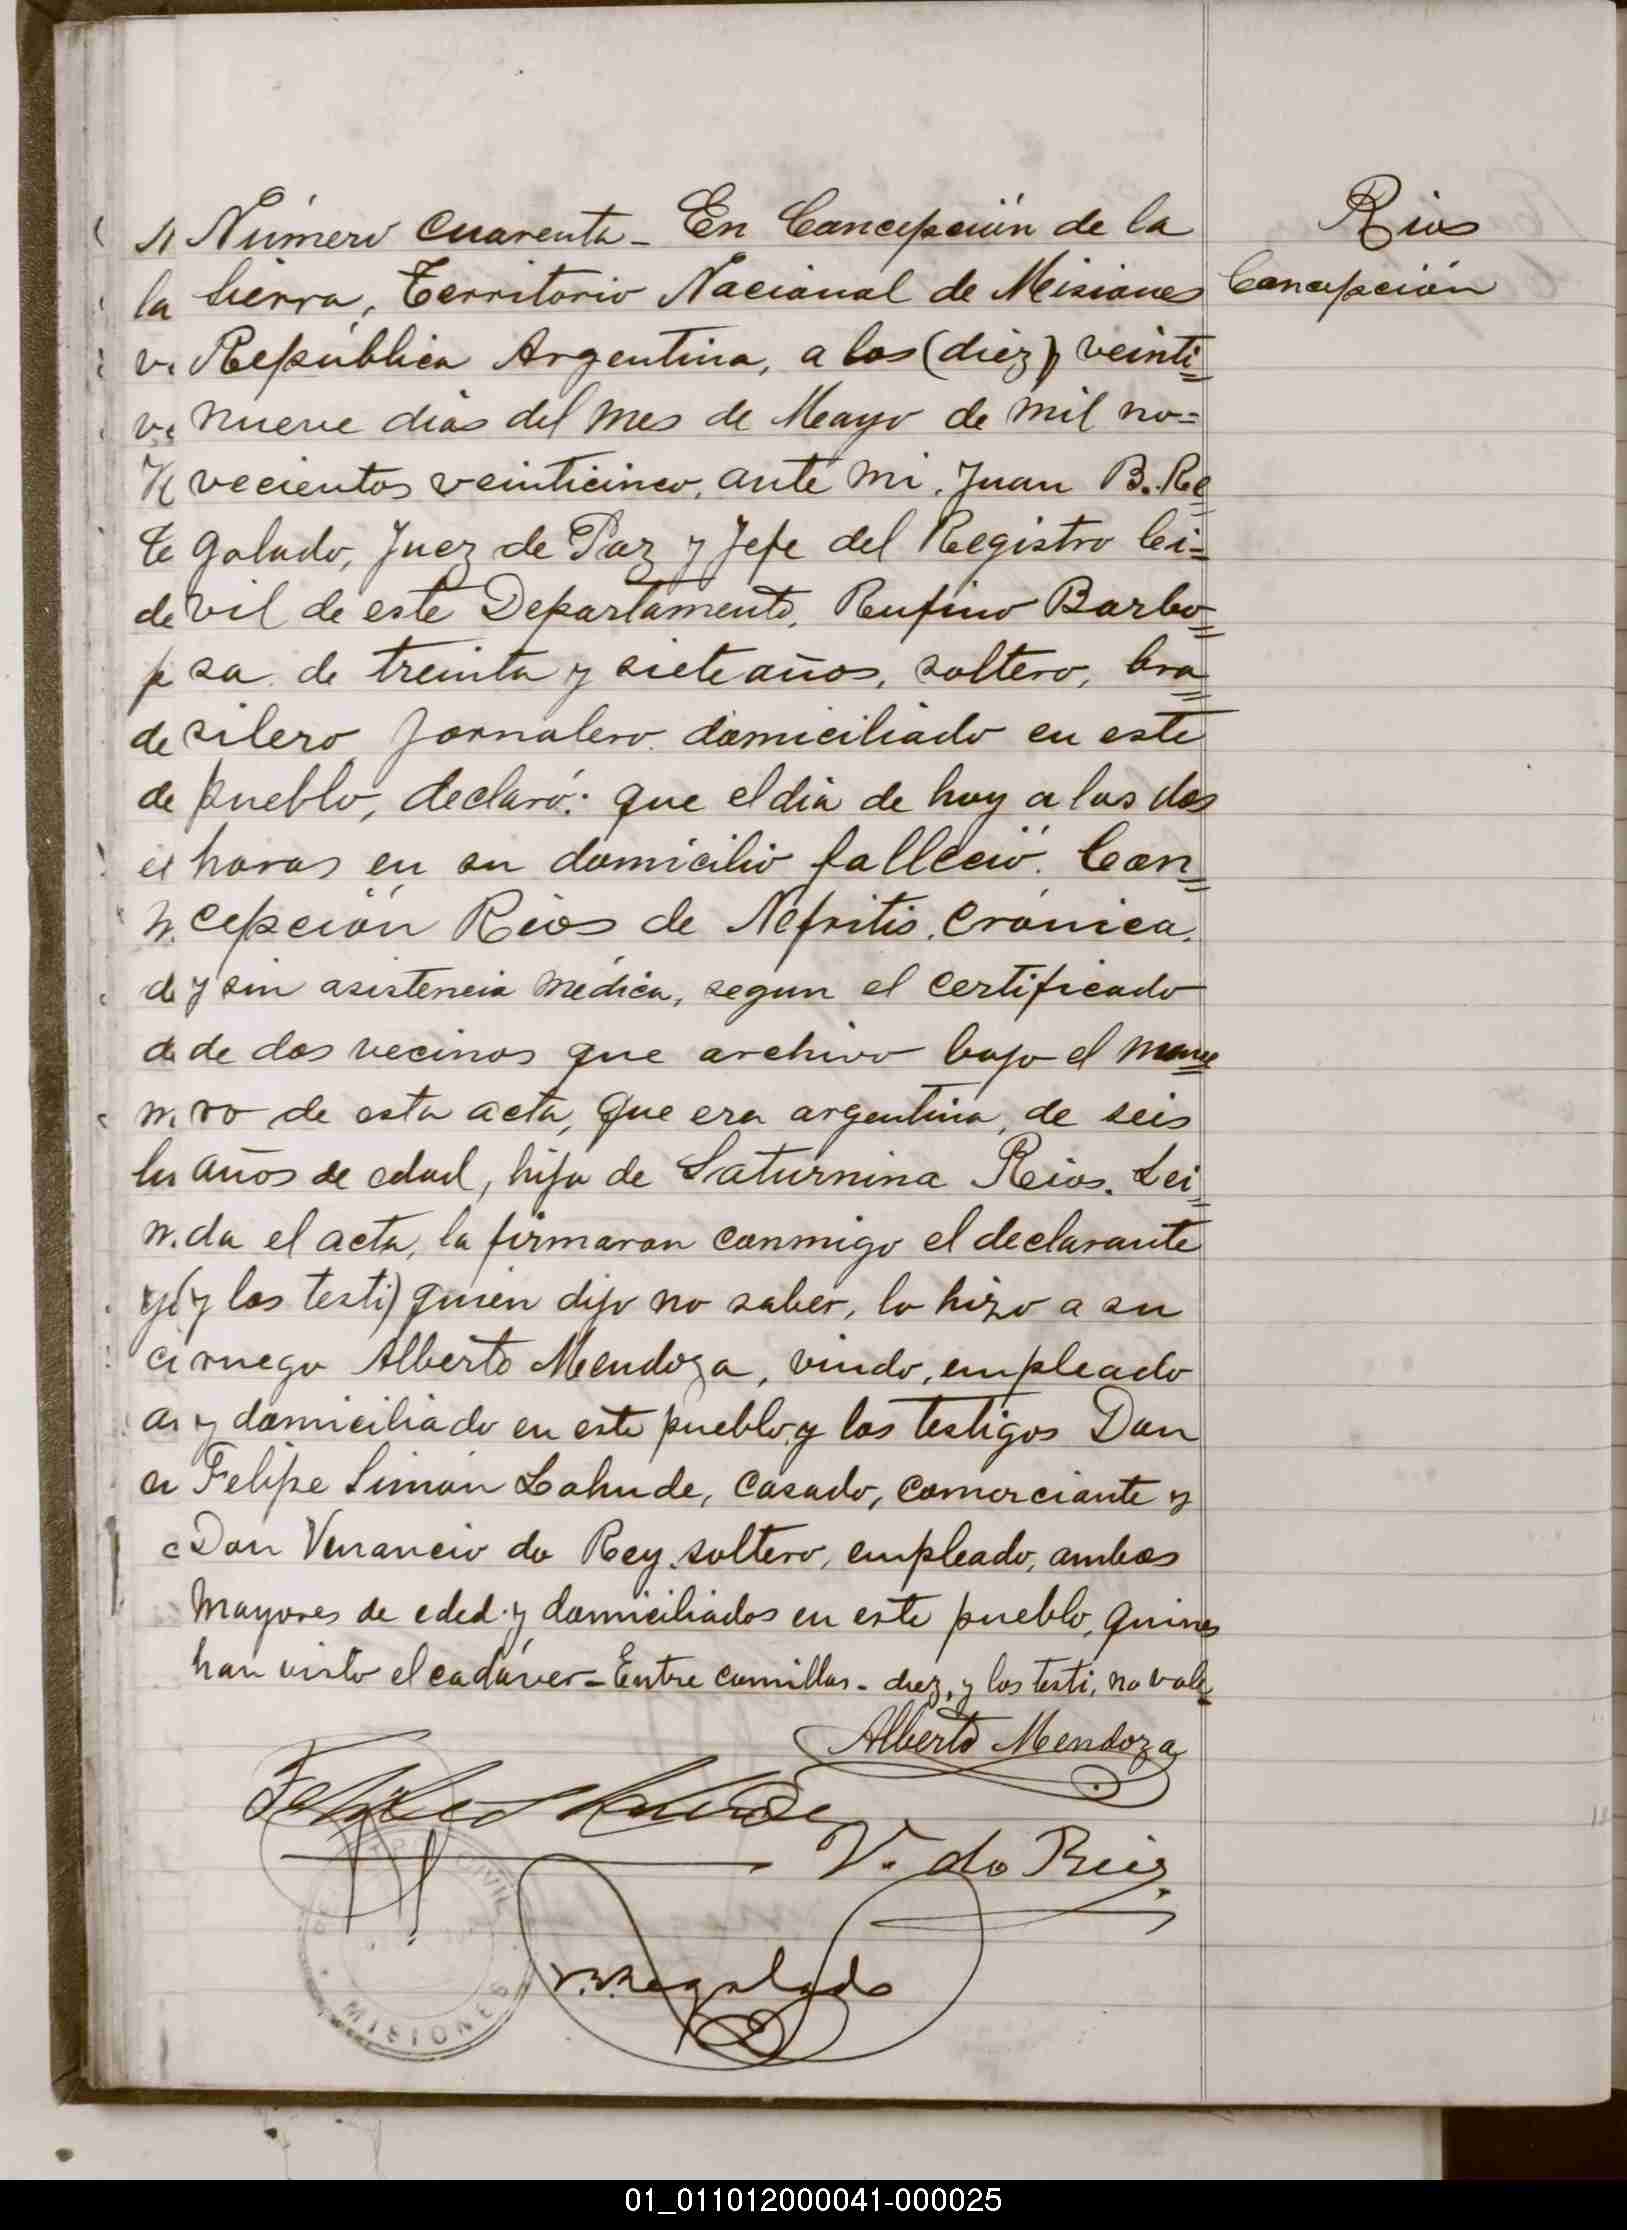 Número cuarenta - En Concepción de la
Sierra, Territorio Nacional de Misiones
República Argentina, a los (diez) veinti=
nueve dias del mes de Mayo de mil no=
vecientos veinticinco, ante mi, Juan B. Re=
galado, Juez de Paz y Jefe del Registro Ci=
vil de este Departamento, Rufino Barbo=
sa de treinta y siete años, soltero, bra=
silero jornalero domiciliado en este
pueblo, declaró: que el dia de hoy a las dos
horas en su domicilio falleció. Con=
cepción Rios de Nefritis, crónica,
y sin asistencia médica, segun el certificado
de dos vecinos que archivo bajo el
ro de esta acta, que era argentina, de seis
años de edad, hija de Saturnina Rios. Lei=
da el acta, la firmaron conmigo el declarante
(y los testi) quien dijo no saber, lo hizo a su
ruego Alberto Mendoza, viudo, empleado
y domiciliado en este pueblo, y los testigos Don
Felipe Simón Lahude, casado, comerciante y
Don Venancio do Rey, soltero, empleado, ambos
mayores de eded y domiciliados en este pueblo, quines
han visto el cadáver - Entre comillas - diez, y los testi, no vale
Rios
Concepción
Alberto Mendoza
V. do Rey
Regalado
CIVIL
MISIONES
01_011012000041-000025